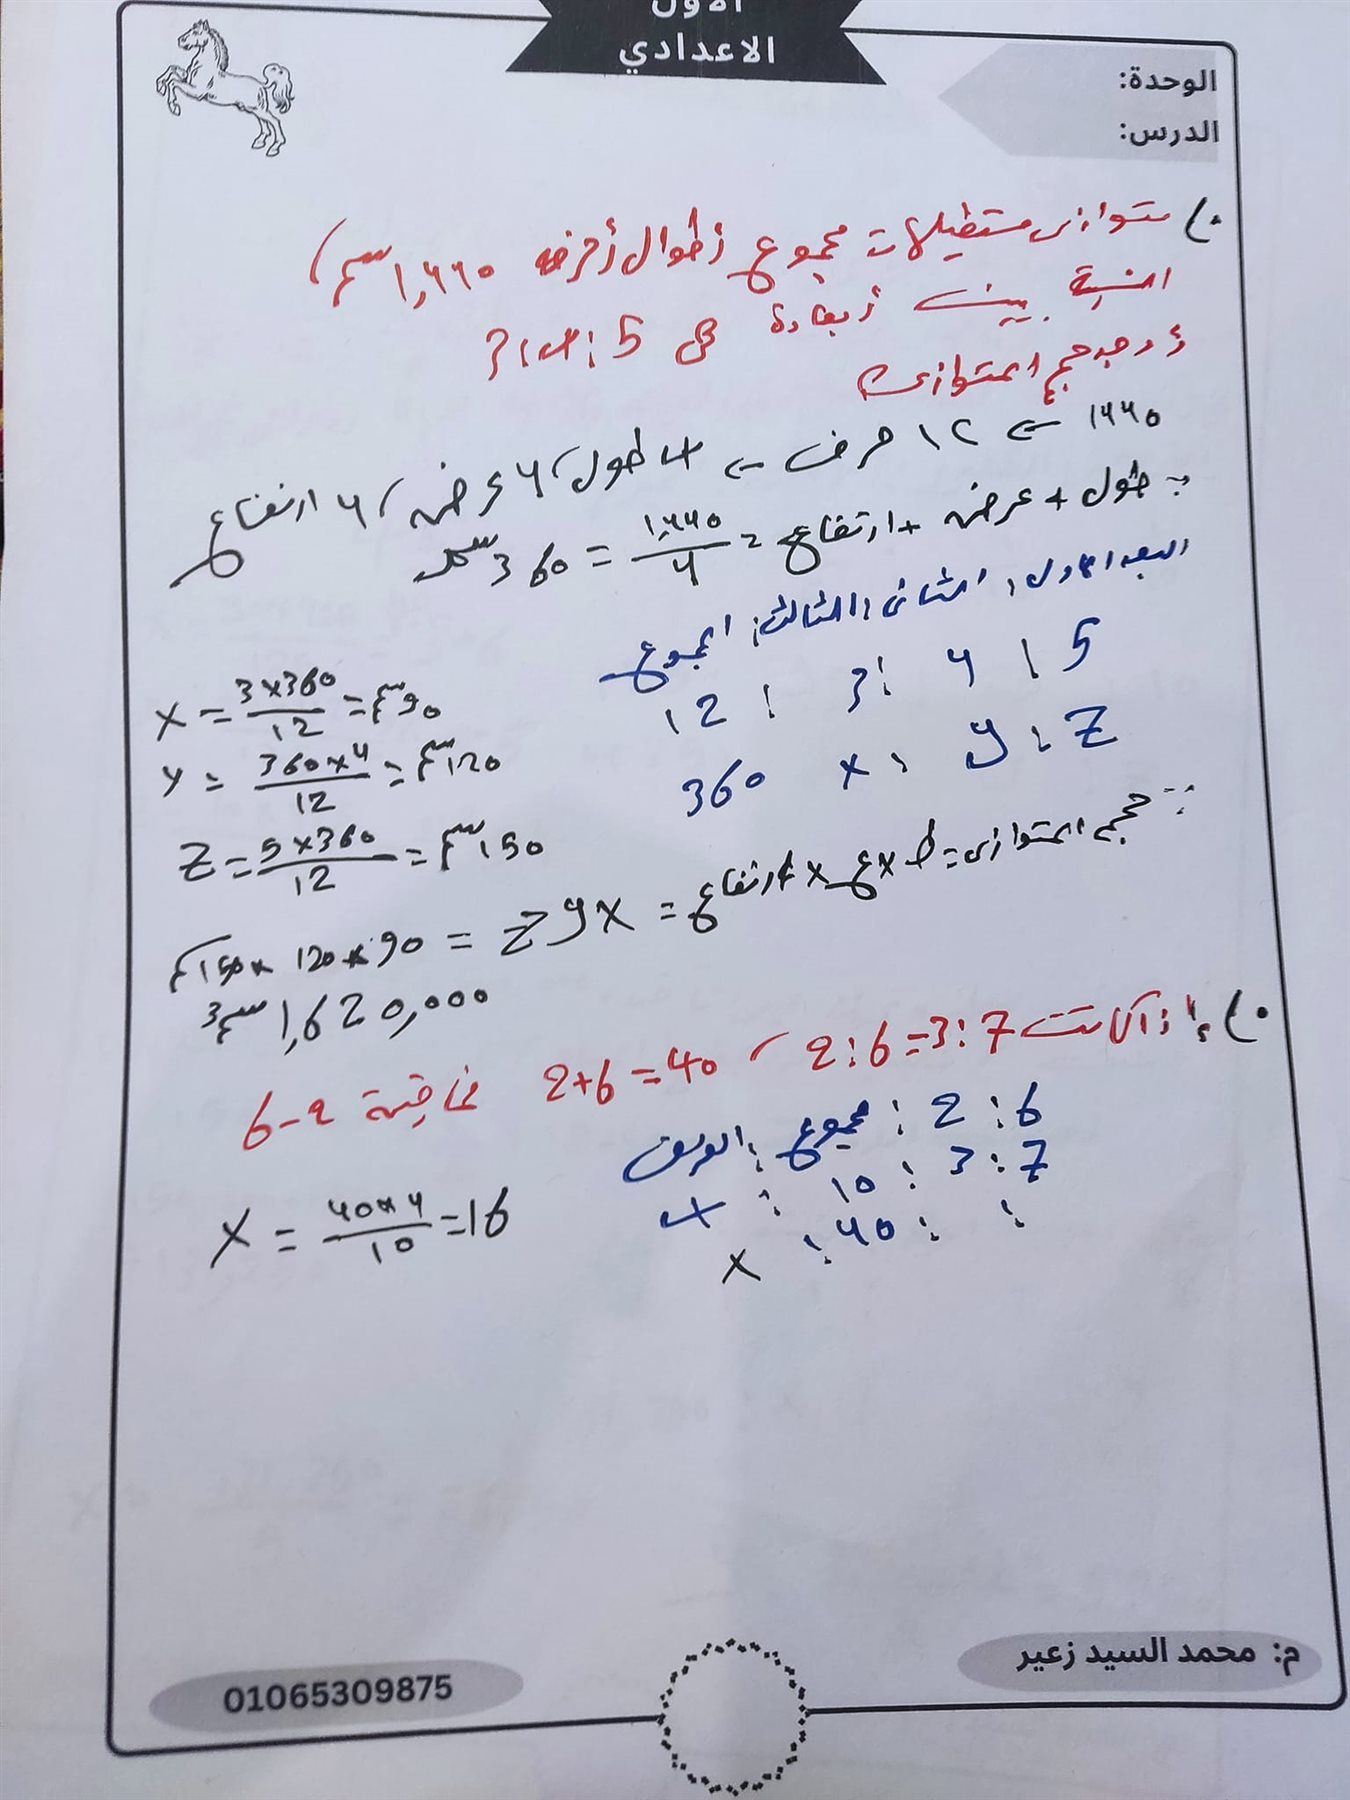 الاول
الاعدادي
الوحدة:
الدرس:
متوازى مستطيلات مجموع أطوال أحرفه 1,440 سم
النسبة بين أبعاده هى 5 : 4 : 3
أوجد حجم المتوازى
1440 ← 12 حرف ← 4 طول، 4 عرض، 4 ارتفاع
∴ طول + عرض + ارتفاع = 1,440 / 4 = 360 سم
البعد الاول : الثانى : الثالث : المجموع
5 : 4 : 3 : 12
Z : y : x 360
X = 3×360 / 12 = 90 سم
Y = 360×4 / 12 = 120 سم
Z = 5×360 / 12 = 150 سم
∵ حجم المتوازى = ط × ع × ارتفاع = X y Z = 90 × 120 × 150
1,620,000 سم3
إذا كانت 2:6=3:7 ، 2+6=40 فما قيمة 6-2
6 : 2 : مجموع : الفرق
7 : 3 : 10 : 4
: : 40 : X
X = 40×4 / 10 = 16
م: محمد السيد زعير
01065309875